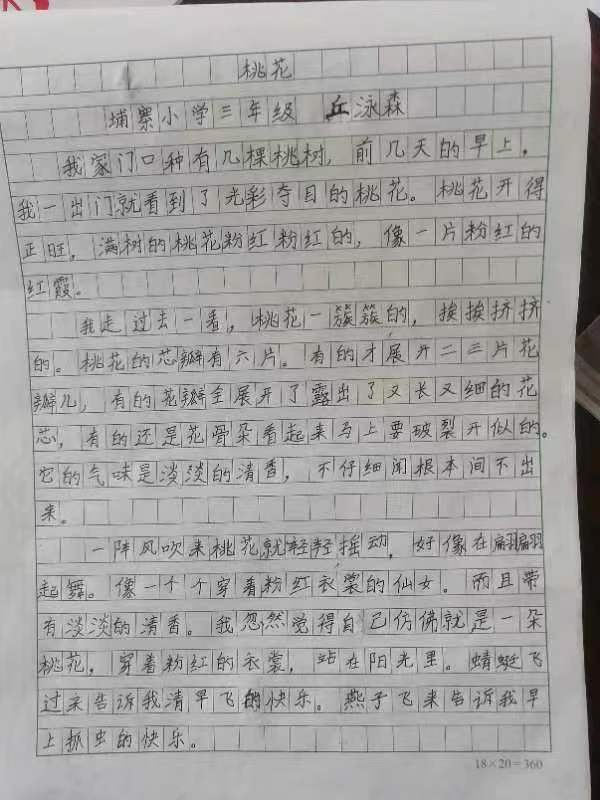 桃花
埔寨小学三年级 丘泳森
我家门口种有几棵桃树，前几天的早上，
我一出门就看到了光彩夺目的桃花。桃花开得
正旺，满树的桃花粉红粉红的，像一片粉红的
红霞。
我走过去一看，桃花一簇簇的，挨挨挤挤
的。桃花的芯瓣有六片。有的才展开二三片花
瓣儿，有的花瓣全展开了露出了又长又细的花
芯，有的还是花骨朵看起来马上要破裂开似的。
它的气味是淡淡的清香，不仔细闻根本间不出
来。
一阵风吹来桃花就轻轻摇动，好像在翩翩
起舞。像一个个穿着粉红衣裳的仙女。而且带
有淡淡的清香。我忽然觉得自己仿佛就是一朵
桃花，穿着粉红的衣裳，站在阳光里。蜻蜓飞
过来告诉我清早飞的快乐。燕子飞来告诉我早
上抓虫的快乐。
18×20=360